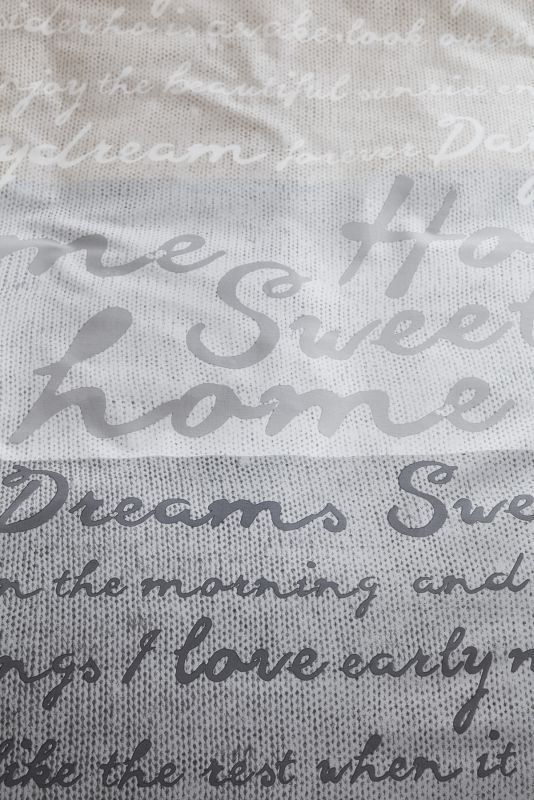 who is awake look
the beautiful sunrise
ydream forever Da
me Ho
Sweet
home
Dreams Swe
n the morning and
ngs I love early
like the rest when it